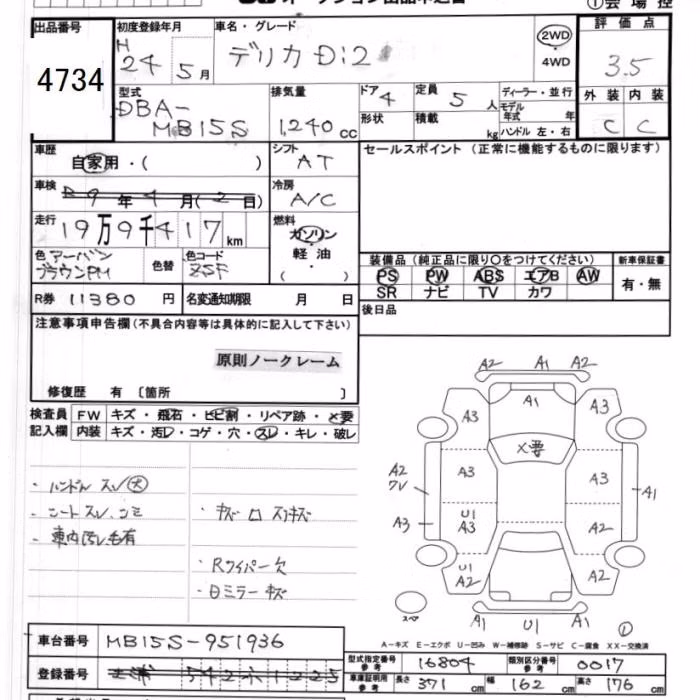 ①会場控
出品番号
4734
初度登録年月
H
24 5月
車名・グレード
デリカ D:2
2WD
・
4WD
評価点
3.5
外装 内装
C C
型式
DBA-
MB15S
排気量
1,240cc
ドア
4
定員
5人
形状
積載
kg
ディーラー・並行
モデル
年式 年
ハンドル 左・右
車歴
自家用・( )
シフト
AT
セールスポイント(正常に機能するものに限ります)
車検
R9年4月(2日)
冷房
A/C
走行
19万9千417km
燃料
ガソリン
・
軽油
( )
色 アーバン
ブラウンPM
色替
色コード
ZSF
装備品(純正品に限り〇をつけてください)
PS PW ABS エアB AW
SR ナビ TV カワ
新車保証書
有・無
R券 11380円
名変通知期限 月 日
後日品
注意事項申告欄(不具合内容等は具体的に記入して下さい)
原則ノークレーム
修復歴 有 〔箇所 〕
検査員
記入欄
FW キズ・飛石・ヒビ割・リペア跡・×要
内装 キズ・汚レ・コゲ・穴・スレ・キレ・破レ
・ハンドル スレ大
・シート スレ、シミ
・車内汚レ毛有
・キズ ロ スリキズ
・Rワイパー欠
・Dミラー キズ
A2 A1 A2
A3 A1 A3
X要
A2
ワレ
A3 A3 A1
A3
U1
A3
A2
U1
A2
A2
スペア
A1 U1 A1
①
A-キズ E-エクボ U-凹み W-補修跡 S-サビ C-腐食 XX-交換済
車台番号
MB15S-951936
登録番号
土浦 542 ホ 1225
型式指定番号
参考
16804
類別区分番号
参考
0017
車庫証明用
参考
長さ 371cm 幅 162cm 高さ 176cm